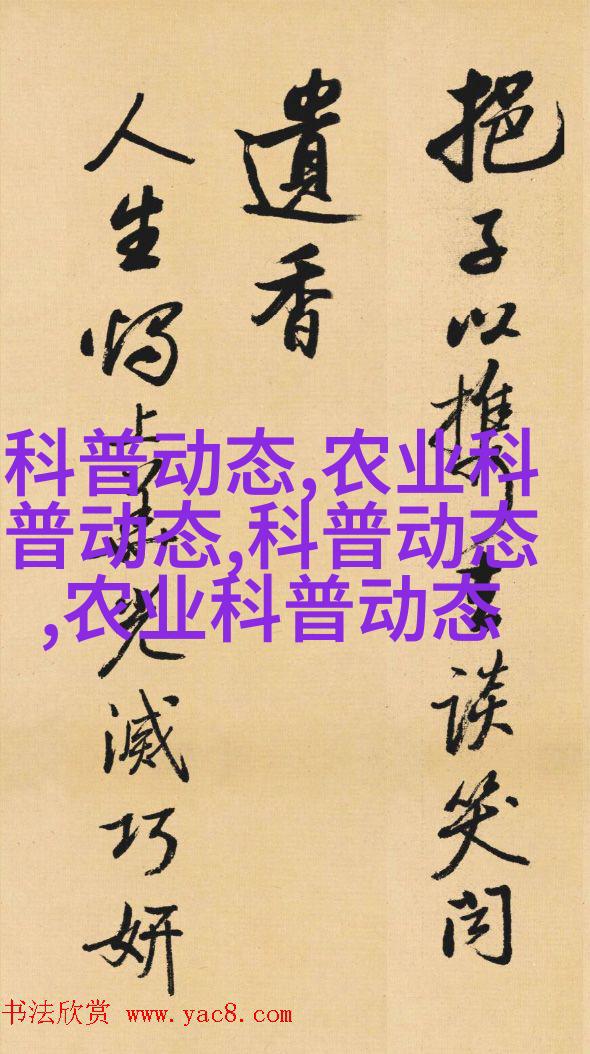 挹子以携談笑
遺香
人生上光滅巧妍
科普动态,农业科
普动态,科普动态
,农业科普动态
书法欣赏 www.yac8.com